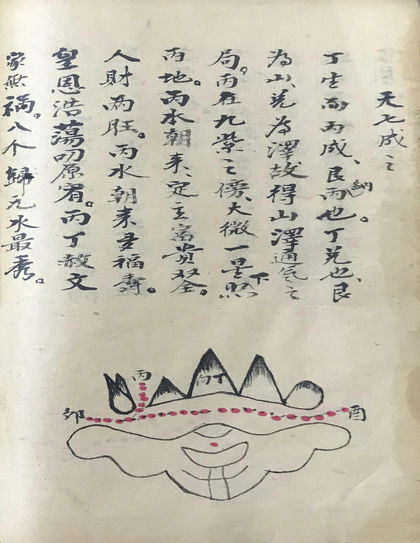 天七成之
丁生而丙成、艮納丙也。丁兌也、艮
為山、兌為澤故得山澤通氣之
局。丙在九紫之傍、大微一星下照
丙地。丙水朝来、定主富貴双全。
人財両旺。丙水朝来主福壽。
皇恩浩蕩叨原宥。丙丁赦文
家無禍。八个歸元水最秀。
丙
丁
卯
酉